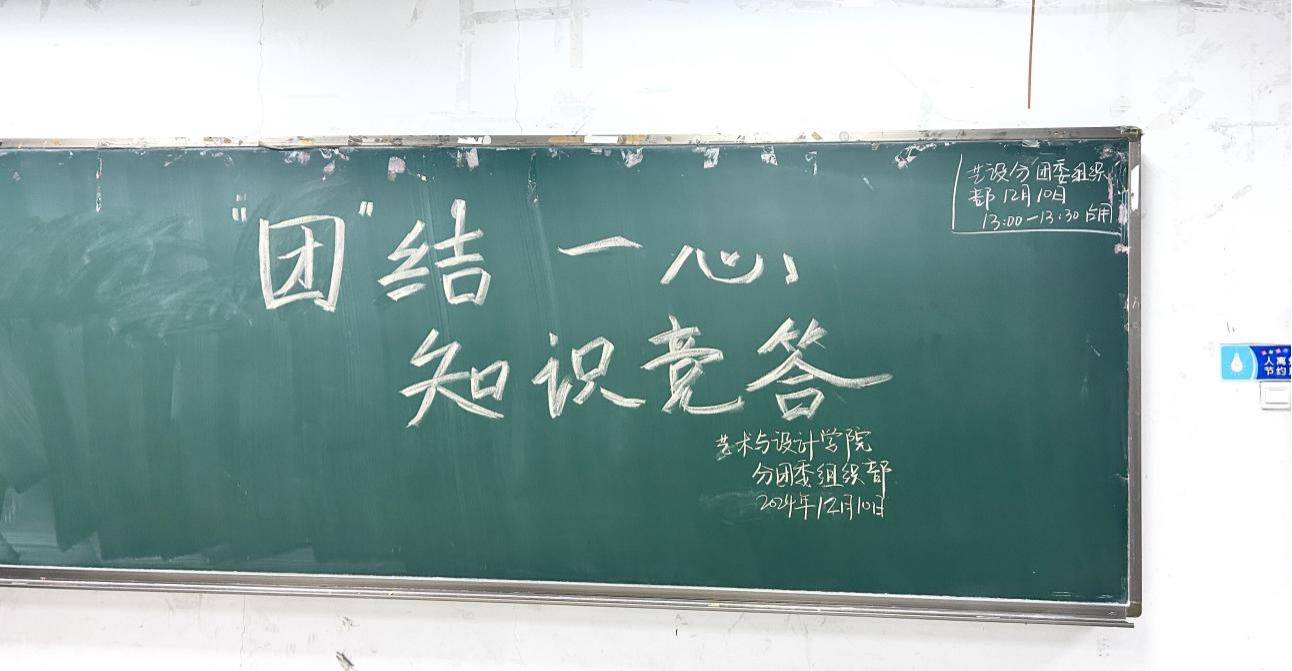 艺设分团委组织
部12月10日
13:00-13:30占用
“团”结一心,
知识竞答
艺术与设计学院
分团委组织部
2024年12月10日
人离
节约